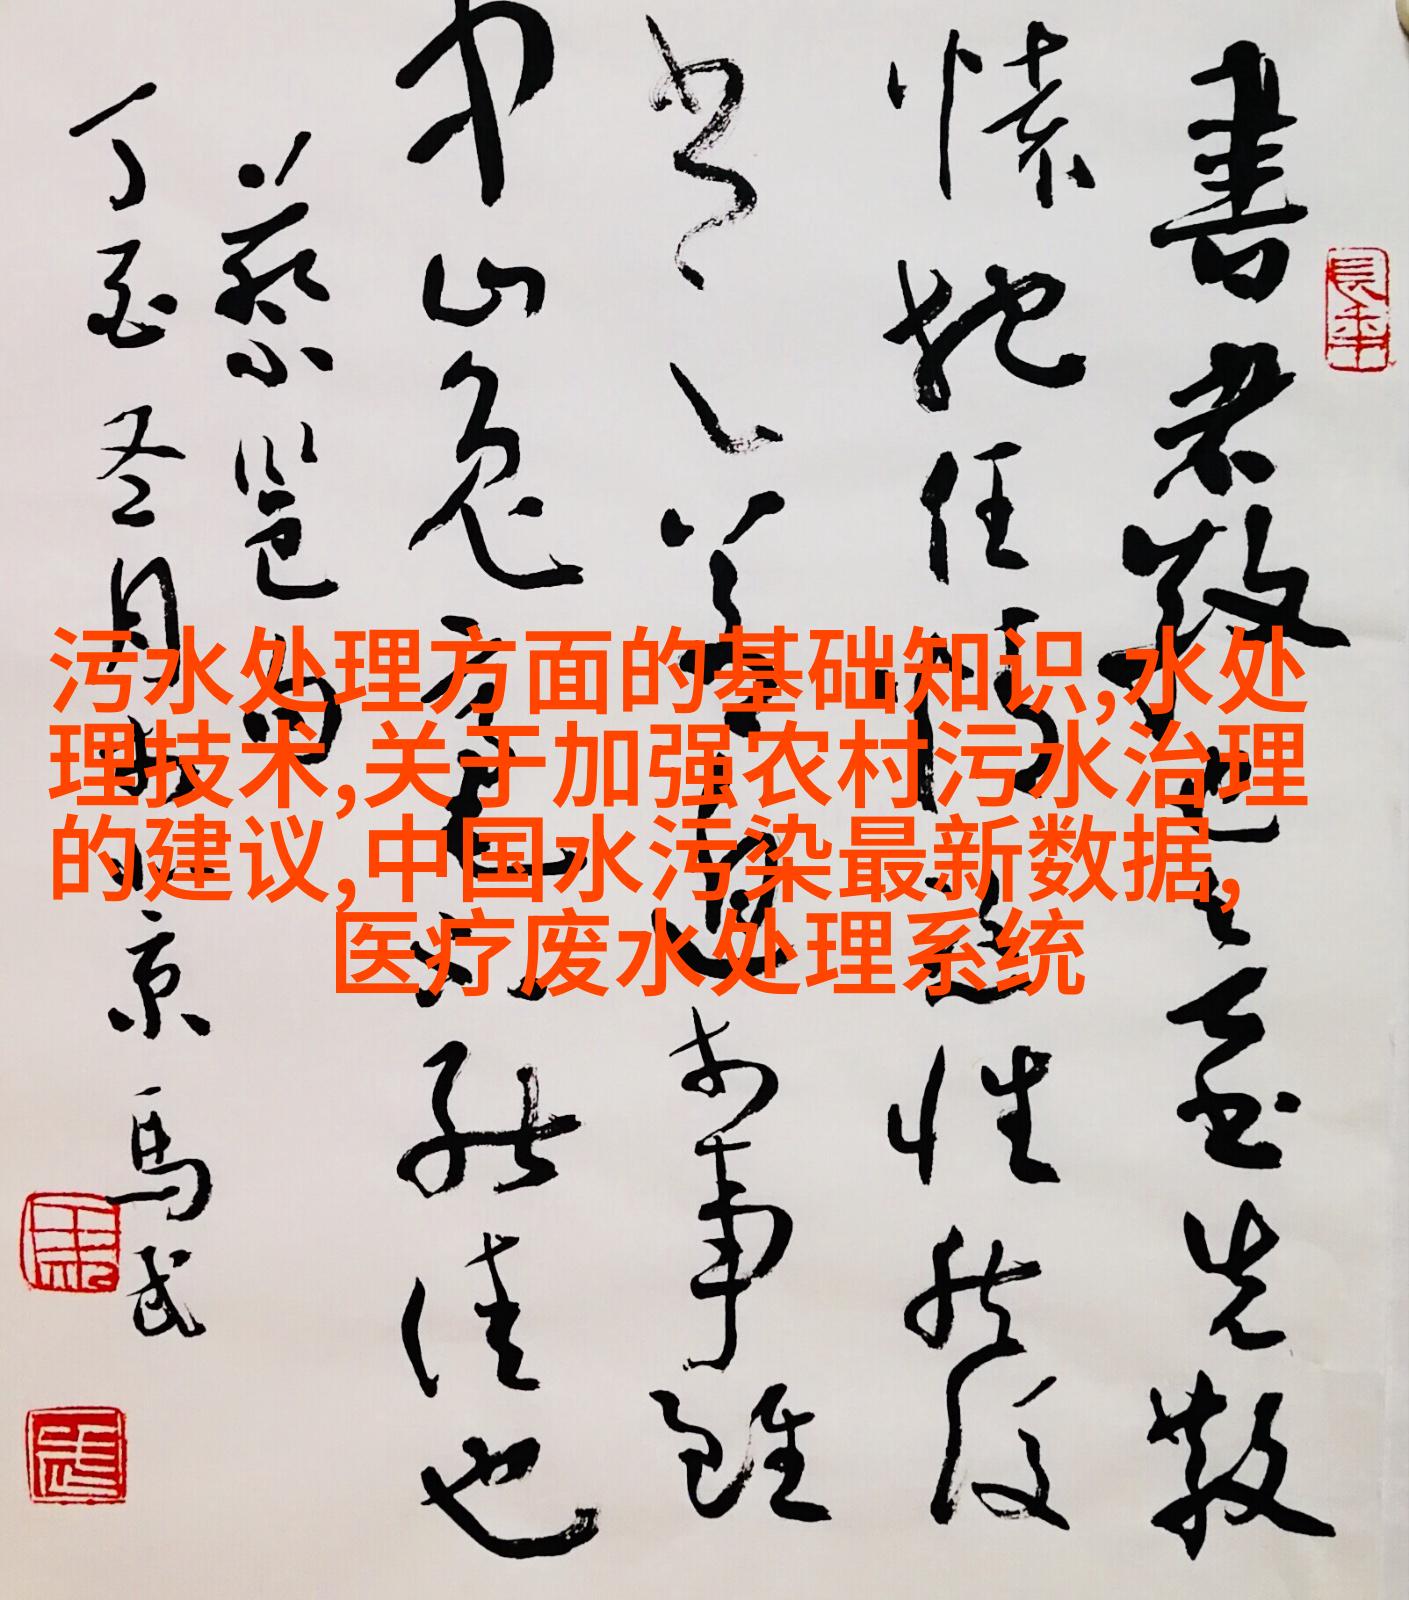 污水处理方面的基础知识,水处
理技术,关于加强农村污水治理
的建议,中国水污染最新数据,
医疗废水处理系统
書者散也欲書先散
懷抱任情恣性然後
書之若迫於事雖
中山兔毫不能佳也
蔡邕
丁酉冬月於北京馬武